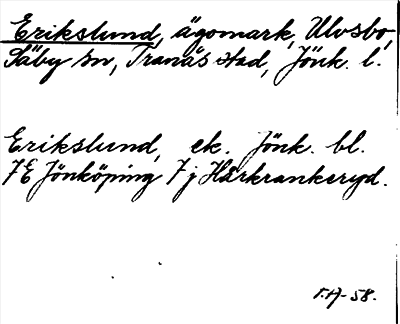 Erikslund, ägomark, Ulvsbo,
Säby sn, Tranås stad, Jönk. l.
Erikslund, ek. Jönk. bl.
7E Jönköping 7j Hårkrankeryd.
T.H-58.